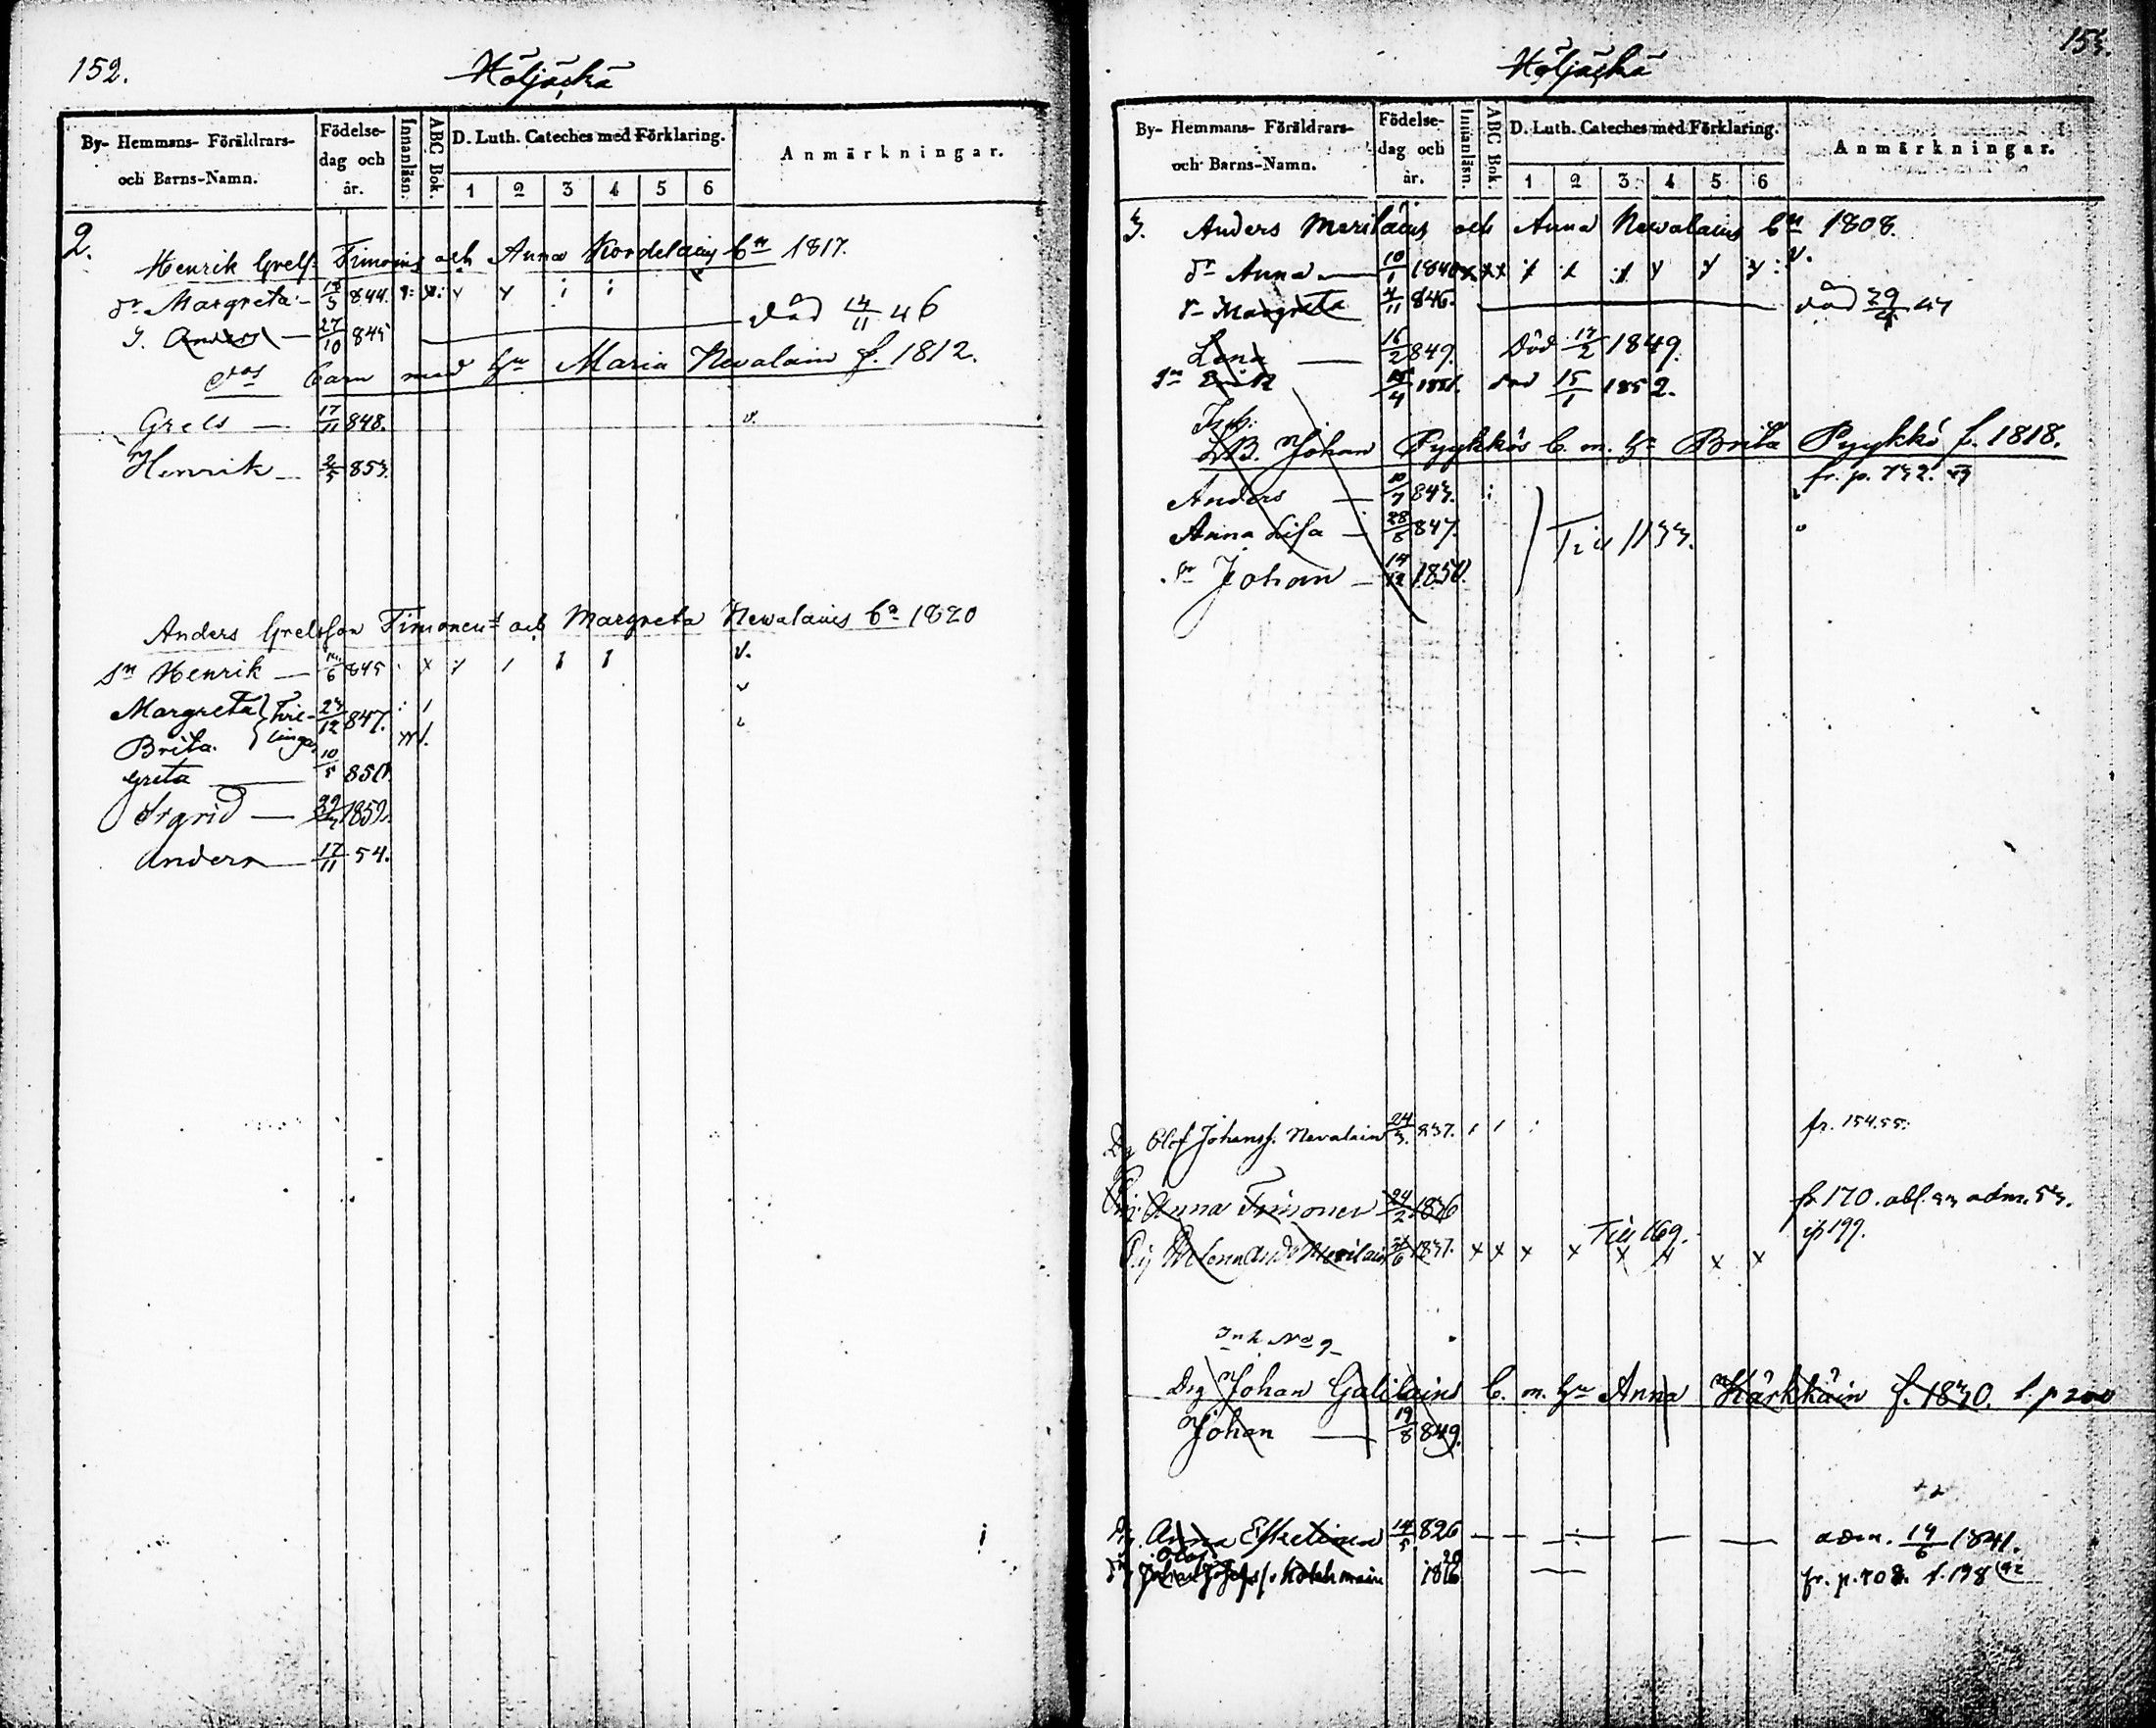 152.
Höljäckä
By- Hemmans- Föräldrars- och Barns-Namn.
Födelse- dag och år.
Innanläsn.
ABC Bok.
D. Luth. Cateches med Förklaring.
1 2 3 4 5 6
Anmärkningar.
2.
Henrik Grelss. Timoins och Anna Kordelains bn 1817.
dr Margreta 844.
S. Anders 27/10 845 Död 14/11 46
Barn med hu Maria Nevalain f. 1812.
Grels 17/11 848. v.
Henrik 853.
Anders Grelsson Timonens och Margreta Newalains bn 1820
Sn Henrik 845 v.
Margreta } Twil- 23/12 847.
Brita } lingar
Greta 10/5 850.
Sigrid 185
Anders 17/11 54.
153.
Höljäckä
By- Hemmans- Föräldrars- och Barns-Namn.
Födelse- dag och år.
Innanläsn.
ABC Bok.
D. Luth. Cateches med Förklaring.
1 2 3 4 5 6
Anmärkningar.
3. Anders Meriläins och Anna Newalains bn 1808.
dr Anna 10/1 1840 v.
dr Margreta 4/11 846. Död 29/4 47
Lena 16/2 849. Död 17/2 1849.
Sn Erik 15/4 1851. död 15/1 1852.
Inh.
Johan Pyykkös b. m. hu Brita Pyykkö f. 1818.
Anders 10/7 843. fr. p. 732.
Anna Lisa 28/6 847. Till 1133.
Sn Johan 14/12 1850.
Dg Olof Johanss. Nevalain 24/3. 837. fr. 154.55.
Anna Timonen 24/2 1836 fr 170. abl. 33 adm. 53.
Till 169. ip 199.
Helena And. Meriläin 1837.
Inh No 9
Drg Johan Galilains b. m. hu Anna Kärkkäin f. 1830. t. p 200
Johan 19/8 849.
Anna Eskelinen 14/5 826 adm. 14/6 1841.
Olof
Kokkmain 18 fr. p. 708. t. 198